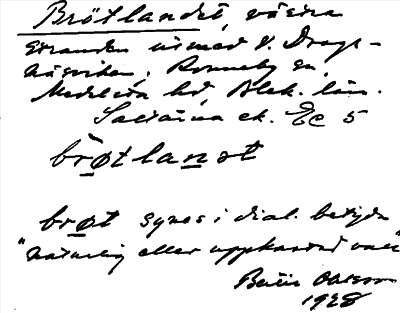 Brötlandet, västra
stranden utmed V. Drags-
näsviken, Ronneby sn,
Medelsta hd, Blek. län.
Saltsina ek. Ec 5
brøtlanət
brøt synes i dial. betyda
"naturlig eller uppkastad vall"
Bertil Ohlsson
1928